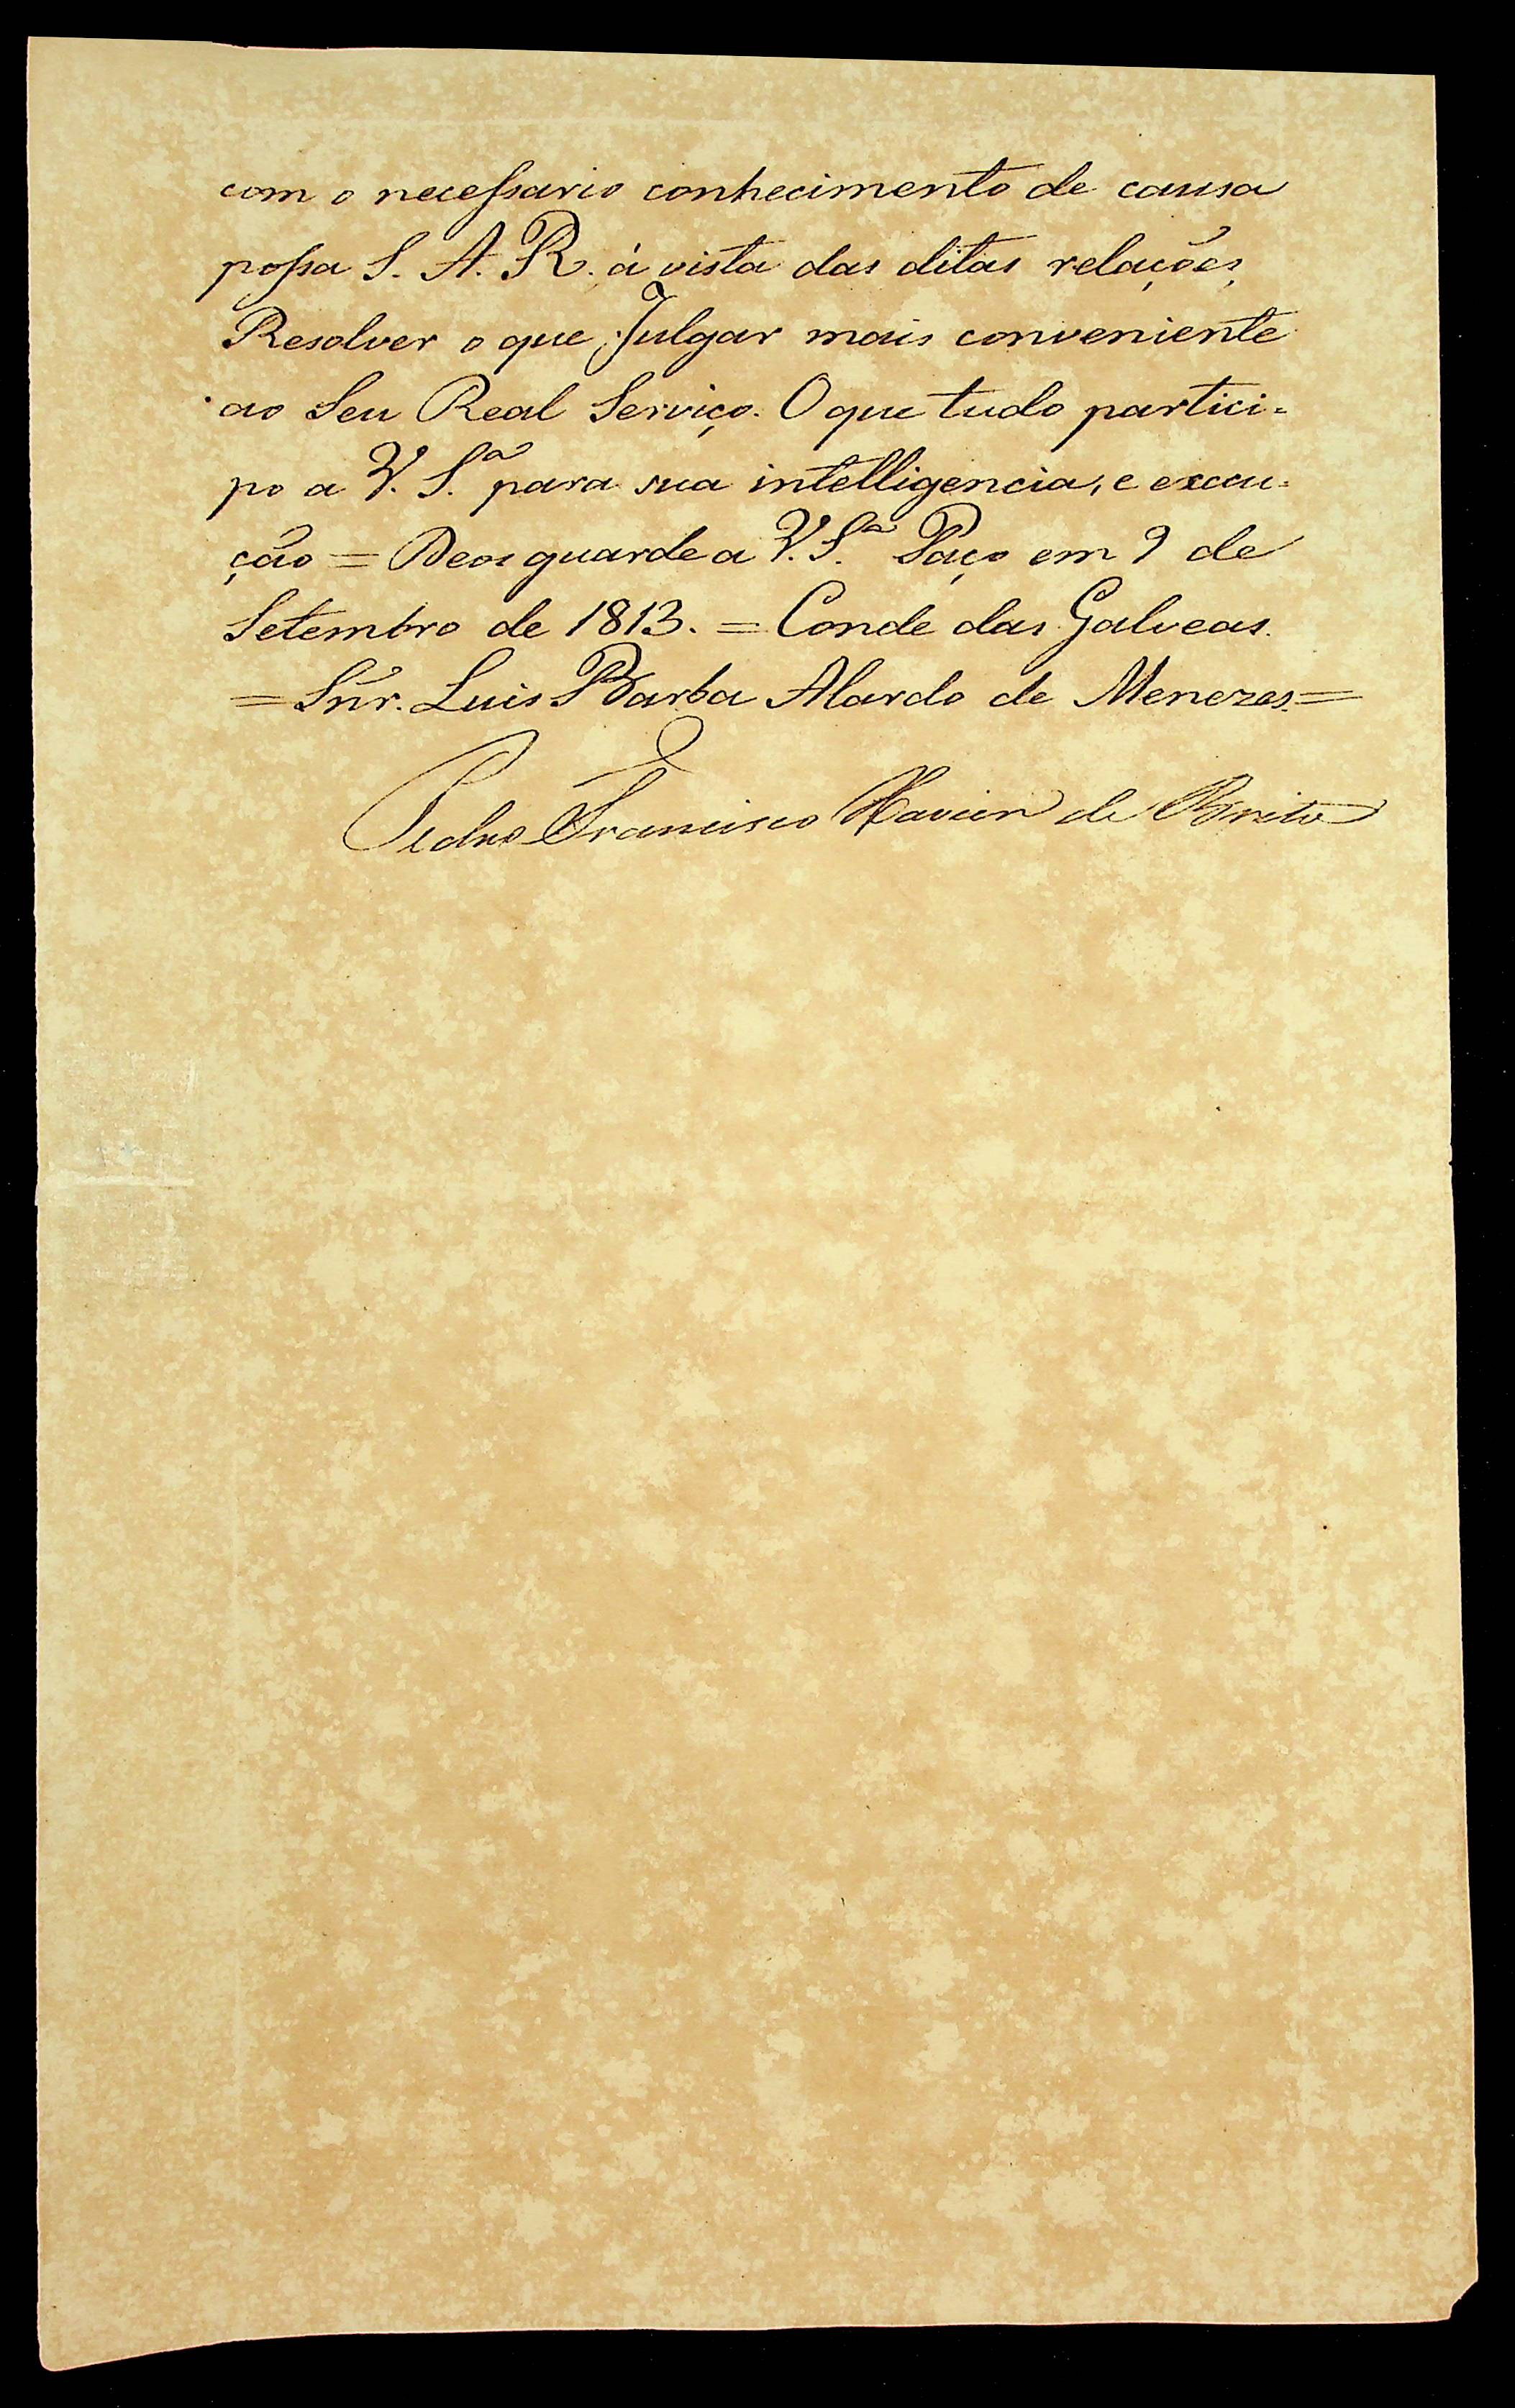 com o necessario conhecimento de causa
possa S. A. R. á vista das ditas relações,
Resolver o que Julgar mais conveniente
ao Seu Real Serviço. O que tudo partici=
po a V. S.ª para sua intelligencia, e execu=
ção = Deos guarde a V. S.ª Paço em 9 de
Setembro de 1813. = Conde das Galveas.
= Snr. Luis Barba Alardo de Menezes. =
Pedro Francisco Xavier de Brito